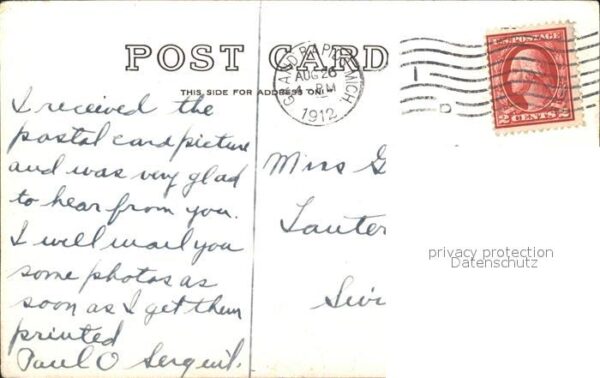 POST CARD
THIS SIDE FOR ADDRESS ONLY
GRAND RAPIDS MICH
AUG 26
PM
1912
U.S. POSTAGE
2 CENTS 2
I received the
postal card picture
and was very glad
to hear from you.
I will mail you
some photos as
soon as I get them
printed
Paul O
Miss G
Lauter
Swi
privacy protection
Datenschutz